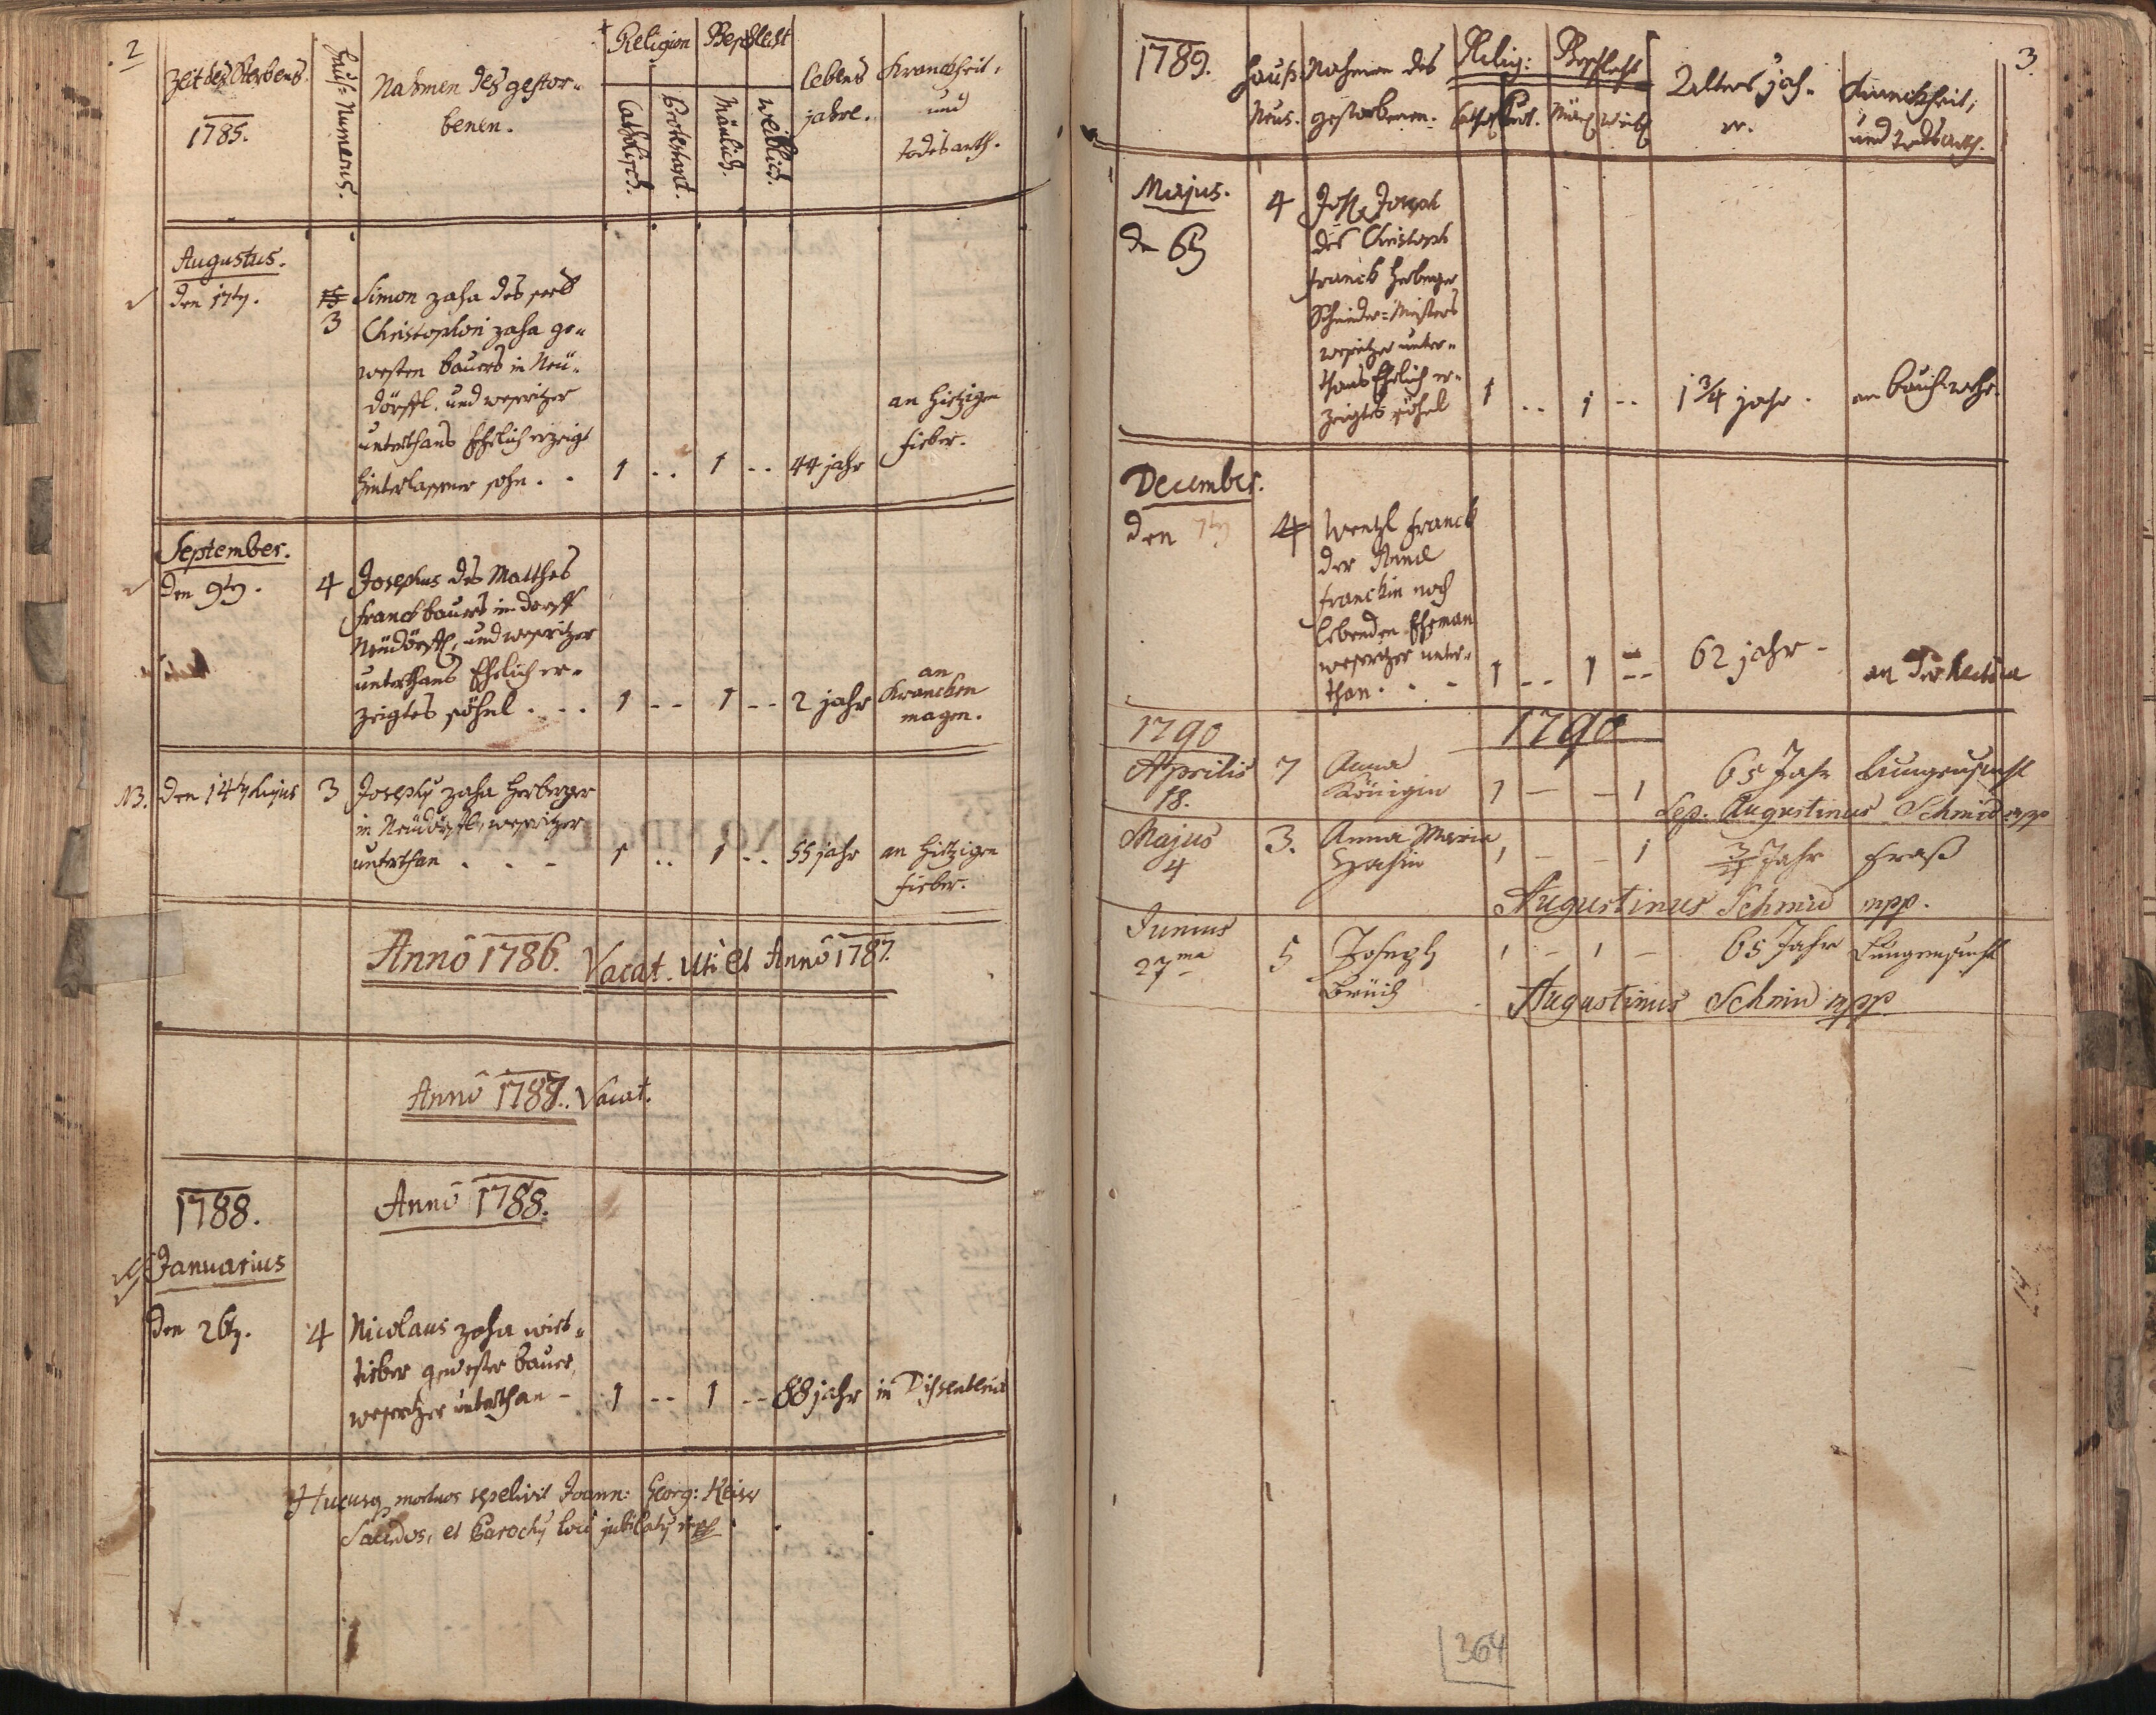 2
Zeit des Sterbens.
1785.
Hauß=Numerus.
Nahmen des gestor-
benen.
Religion
Catholisch.
Protestant.
Geschlecht
Mänlich.
Weiblich.
lebens
jahre.
Kranckheit,
und
todesarth.
Augustus.
den 17ty.
15
3
Simon Zaha des
Christophori Zaha ge-
westen bauers in Neu-
dörffl. und weseritzer
unterthans Ehelich erzeigt
hinterlassner sohn . .
1 .. 1 .. 44 jahr
an hitzigen
fieber.
September.
den 9ty.
4
Josephus des Matthes
Franck bauers im dorff
Neudörffl, und weseritzer
unterthans Ehelich er-
zeigtes söhnl . . .
1 -- 1 -- 2 jahr
an
Krancken
magen.
NB. den 14ty hujus 3 Josephy Zaha Herberger
in Neudörffl, weseritzer
unterthan . . -
1 .. 1 .. 55 jahr
an hitzigen
fieber.
Annô 1786. Vacat. Uti et Annô 1787.
Annô 1787. Vacat.
1788.
Annô 1788.
Januarius
den 26ty.
4
Nicolaus Zaha witt-
tieber gewester bauer,
weseritzer unterthan -
1 -- 1 -- 88 jahr in Dissenteria
Hucusq mortuos sepelivit Joann: Georg: Keisr
Sacerdos, et Parochy loci jubilaty mpp
3.
1789.
Hauß
Nus.
Nahmen des
gestorbenen.
Relig:
Cathol Prot.
Geschlecht
Mänl weibl
Alters jah-
re.
Kranckheit,
und todtsarth.
Majus.
den 6ty
4
Joseph
des Christoph
Franck Herberger
Schneider=Meisters
weseritzer unter-
thans Ehelich er-
zeigtes söhnl
1 .. 1 -- 1 3/4 jahr. an bauchwehe.
December.
den 7ty
4
Wentzl Franck
der Anna
Franckin noch
lebenden Eheman
weseritzer unter-
than . . -
1 -- 1 -- 62 jahr - an der Hectica
1790
1790
Aprilis
18.
7
Anna
Königin
1 — - 1 65 Jahr Lungensucht
Sep. Augustinus Schmid mpp
Majus
4
3.
Anna Maria
Zahin
1 - - 1 3/4 Jahr Fraß
Augustinus Schmid mpp.
Junius
27ma
5
Joseph
Brüch
1 - 1 - 65 Jahr Lungensucht
Augustinus Schmid mpp
364